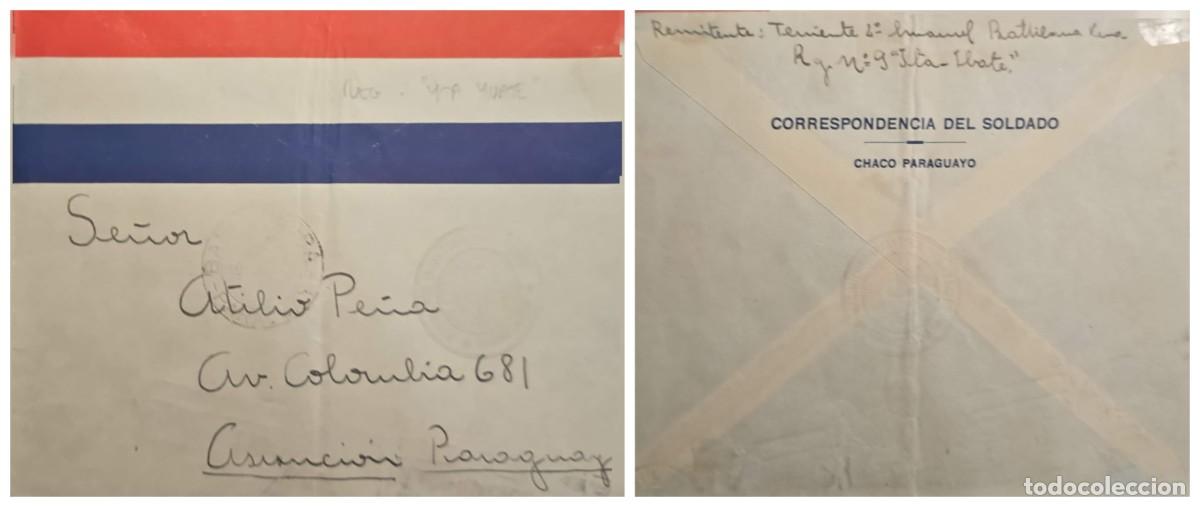 REG. "YTA YVATE"
Señor
Atilio Peña
Av. Colombia 681
Asunción Paraguay
Remitente: Teniente 2º Manuel
Rg. Nº 9 "Ita-Ibate."
CORRESPONDENCIA DEL SOLDADO
CHACO PARAGUAYO
todocoleccion